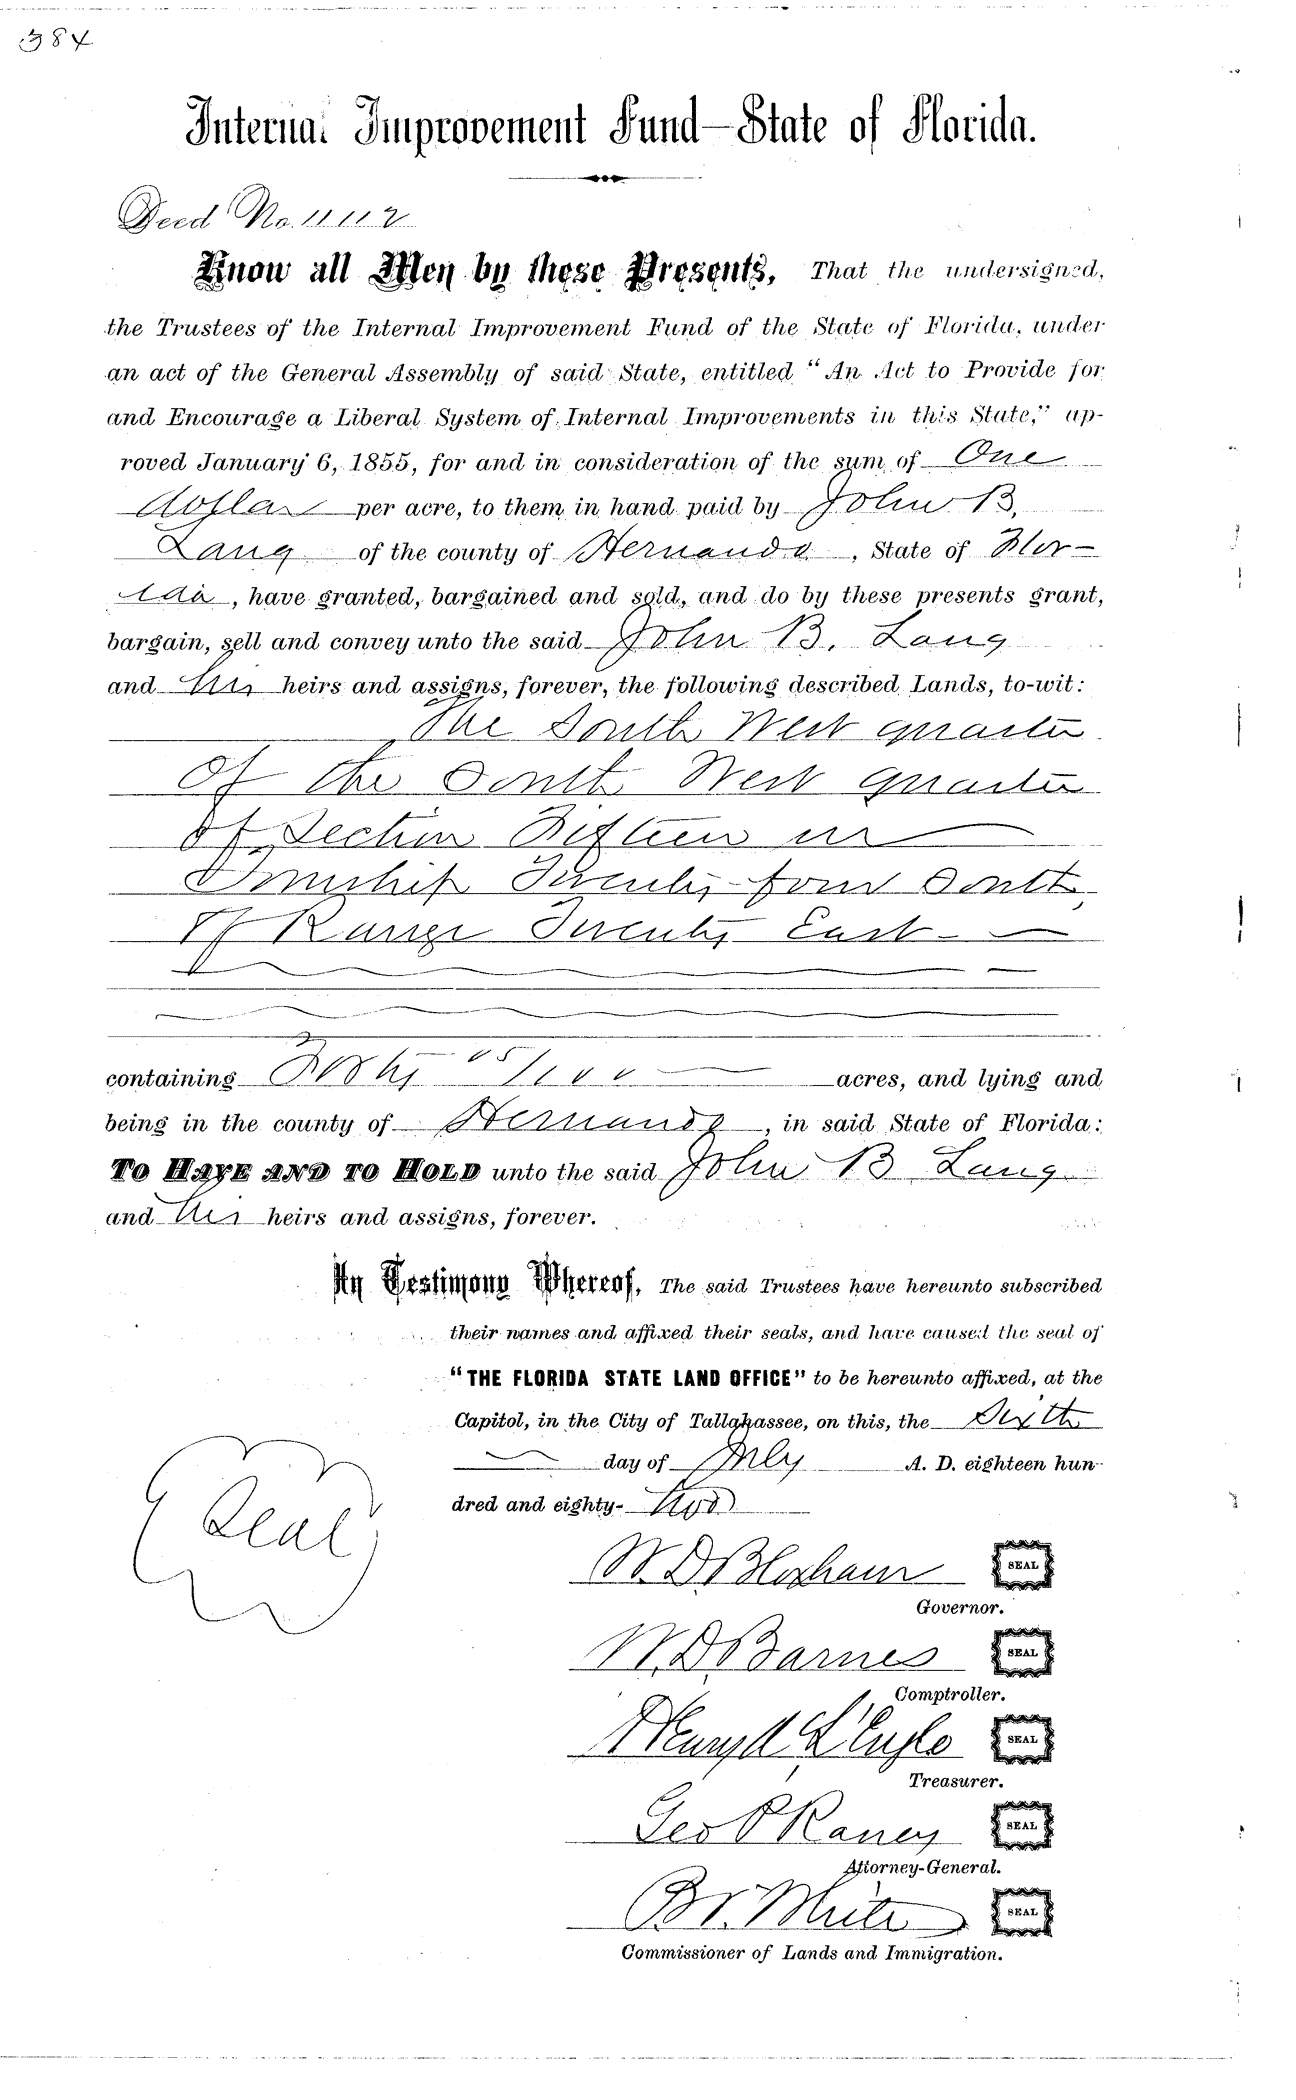 384
Internal Improvement Fund—State of Florida.
Deed No. 11112
Know all Men by these Presents, That the undersigned,
the Trustees of the Internal Improvement Fund of the State of Florida, under
an act of the General Assembly of said State, entitled "An Act to Provide for
and Encourage a Liberal System of Internal Improvements in this State," ap-
roved January 6, 1855, for and in consideration of the sum of One
dollar per acre, to them in hand paid by John B.
Lang of the county of Hernando, State of Flor-
ida, have granted, bargained and sold, and do by these presents grant,
bargain, sell and convey unto the said John B. Lang
and his heirs and assigns, forever, the following described Lands, to-wit:
The South West quarter
of the South West quarter
of Section Fifteen in
Township Twenty-four South
of Range Twenty East
containing Forty 05/100 acres, and lying and
being in the county of Hernando, in said State of Florida:
TO HAVE AND TO HOLD unto the said John B Lang
and his heirs and assigns, forever.
In Testimony Whereof, The said Trustees have hereunto subscribed
their names and affixed their seals, and have caused the seal of
"THE FLORIDA STATE LAND OFFICE" to be hereunto affixed, at the
Capitol, in the City of Tallahassee, on this, the Sixth
day of July A. D. eighteen hun-
dred and eighty-two
Seal
W. D. Bloxham SEAL
Governor.
W. D. Barnes SEAL
Comptroller.
Henry A L'Engle SEAL
Treasurer.
Geo P Raney SEAL
Attorney-General.
White SEAL
Commissioner of Lands and Immigration.